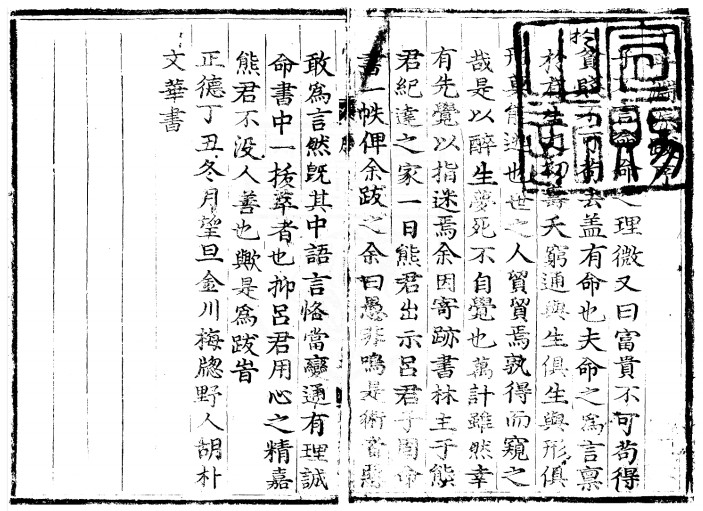 言命命之理微又曰富貴不可苟得
貧賤不可苟去盖有命也夫命之爲言禀
於有生之初壽夭窮通與生俱生與形俱
形莫能逃也世之人貿貿焉孰得而窺之
哉是以醉生夢死不自覺也萬計雖然幸
有先覺以指迷焉余因寄跡書林主于熊
君紀達之家一日熊君出示呂君子閏命
書一帙俾余跋之余曰愚非鳴是術當
敢爲言然旣其中語言恪當變通有理誠
命書中一拔萃者也抑呂君用心之精嘉
熊君不没人善也歟是爲跋旹
正德丁丑冬月望旦金川梅牕野人胡朴
文華書